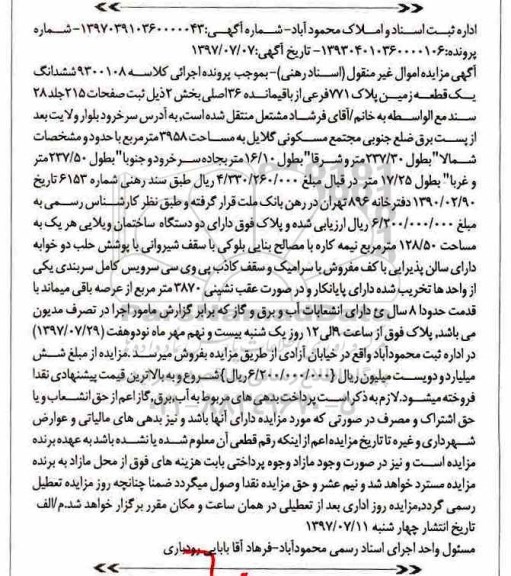 اداره ثبت اسناد و املاک محمود آباد- شماره آگهی:۱۳۹۷۰۳۹۱۰۳۶۰۰۰۰۰۴۳- شماره
پرونده:۱۳۹۳۰۴۰۱۰۳۶۰۰۰۰۱۰۶- تاریخ آگهی:۱۳۹۷/۰۷/۰۷
آگهی مزایده اموال غیر منقول (اسناد رهنی)- بموجب پرونده اجرائی کلاسه ۹۳۰۰۱۰۸ ششدانگ
یک قطعه زمین پلاک ۷۷۱ فرعی از باقیمانده ۳۶ اصلی بخش ۲ ذیل ثبت صفحات ۲۱۵ جلد ۲۸
سند مع الواسطه به خانم/آقای فرشاد مشتعل منتقل شده است، به آدرس سرخرود بلوار ولایت بعد
از پست برق ضلع جنوبی مجتمع مسکونی گلایل به مساحت ۳۹۵۸ متر مربع با حدود و مشخصات
شمالا" بطول ۲۳۷/۳۰ متر و شرقا" بطول ۱۶/۱۰ متر بجاده سرخرود و جنوبا" بطول ۲۳۷/۵۰ متر
و غربا" بطول ۱۷/۲۵ متر در قبال مبلغ ۴/۳۳۰/۲۶۰/۰۰۰ ریال طبق سند رهنی شماره ۶۱۵۳ تاریخ
۱۳۹۰/۰۲/۹۰ دفترخانه ۸۹۶ تهران در رهن بانک ملت قرار گرفته و طبق نظر کارشناس رسمی به
مبلغ ۶/۲۰۰/۰۰۰/۰۰۰ ریال ارزیابی شده و پلاک فوق دارای دو دستگاه ساختمان ویلایی هر یک به
مساحت ۱۲۸/۵۰ مترمربع نیمه کاره با مصالح بنایی بلوکی با سقف شیروانی با پوشش حلب دو خوابه
دارای سالن پذیرایی با کف مفروش با سرامیک و سقف کاذب پی وی سی سرویس کامل سربندی یکی
از واحد ها تخریب شده دارای پایانکار و در صورت عقب نشینی ۳۸۷۰ متر مربع از عرصه باقی میماند با
قدمت حدودا ۸ سال ی دارای انشعابات آب و برق و گاز که برابر گزارش مامور اجرا در تصرف مدیون
می باشد, پلاک فوق از ساعت ۹ الی ۱۲ روز یک شنبه بیست و نهم مهر ماه نود و هفت (۱۳۹۷/۰۷/۲۹)
در اداره ثبت محمودآباد واقع در خیابان آزادی از طریق مزایده بفروش میرسد .مزایده از مبلغ شش
میلیارد و دویست میلیون ریال (۶/۲۰۰/۰۰۰/۰۰۰ ریال) شروع و به بالاترین قیمت پیشنهادی نقدا
فروخته میشود.لازم به ذکر است پرداخت بدهی های مربوط به آب،برق،گاز اعم از حق انشعاب و یا
حق اشتراک و مصرف در صورتی که مورد مزایده دارای آنها باشد و نیز بدهی های مالیاتی و عوارض
شهرداری و غیره تا تاریخ مزایده اعم از اینکه رقم قطعی آن معلوم شده یا نشده باشد به عهده برنده
مزایده است و نیز در صورت وجود مازاد وجوه پرداختی بابت هزینه های فوق از محل مازاد به برنده
مزایده مسترد خواهد شد و نیم عشر و حق مزایده نقدا وصول میگردد ضمنا چنانچه روز مزایده تعطیل
رسمی گردد,مزایده روز اداری بعد از تعطیلی در همان ساعت و مکان مقرر برگزار خواهد شد.م/الف
تاریخ انتشار چهار شنبه ۱۳۹۷/۰۷/۱۱
مسئول واحد اجرای اسناد رسمی محمودآباد-فرهاد آقا بابایی رودباری